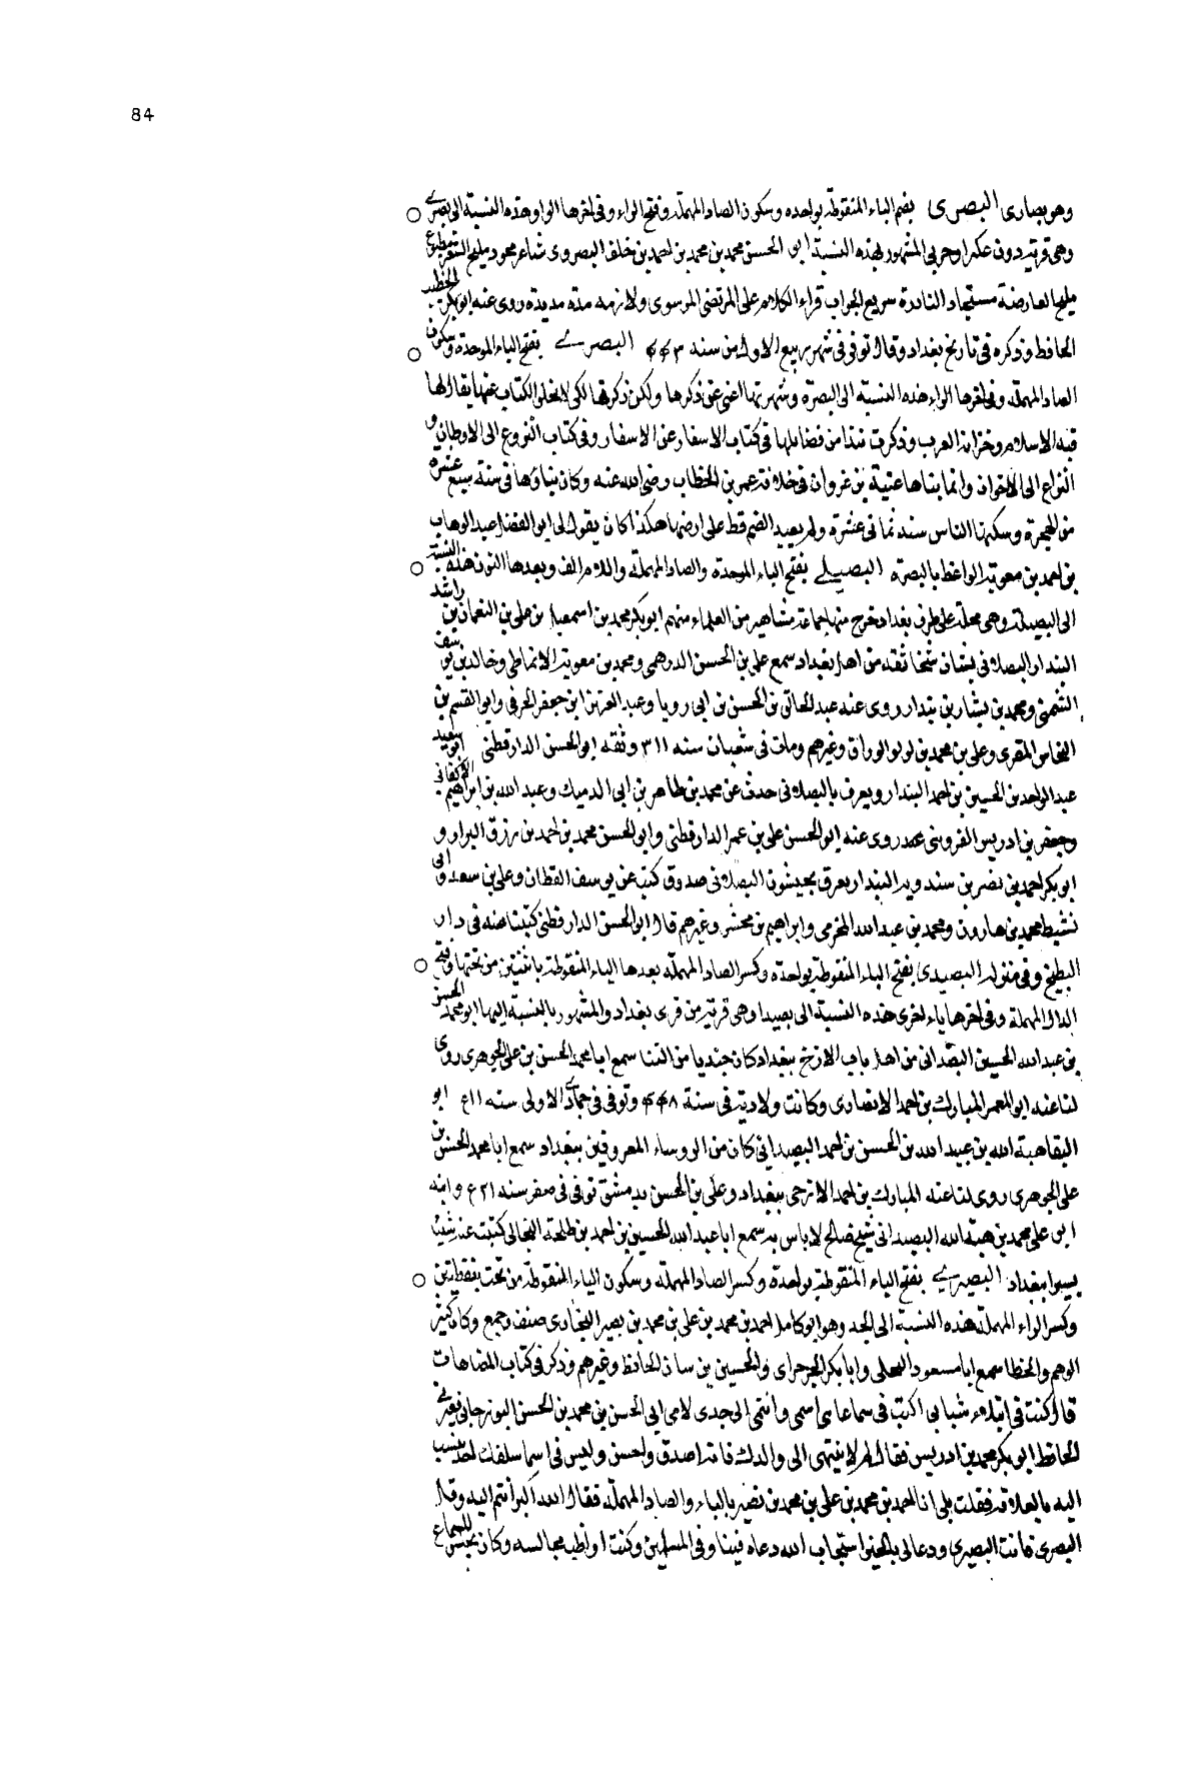 84
وهو بصارى البصروى بضم الباء المنقوطة بواحده وسكون الصاد المهملة وفتح الراء وفى اخرها الواو هذه النسبة الى بصرى
وهى قرية دون عكبرا وحربى المشهور بهذه النسبة ابو الحسن محمد بن محمد بن احمد بن خلف البصروى شاعر مجود مليح الشعر مطبوع
مليح العارضة مستجاد النادرة سريع الجواب قراء الكلام على المرتضى الموسوى ولازمه مدة مديدة روى عنه ابو بكر الخطيب
الحافظ وذكره فى تاريخ بغداد وقال توفى فى شهر ربيع الاول من سنه ۴۴۳ البصرى بفتح الباء الموحدة وسكون
الصاد المهملة وفى اخرها الراء هذه النسبة الى البصرة وشهرتها اغنى عن ذكرها ولكن ذكرتها لكى لا يخلى الكتاب عنها يقال لها
قبة الاسلام وخزانة العرب وذكرت نبذا من فضايلها فى كتاب الاسفار عن الاسفار وفى كتاب النزوع الى الاوطان و
النزاع الى الاخوان وانما بناها عتبة بن غزوان فى خلافة عمر بن الخطاب رضى الله عنه وكان بناؤها فى سنة سبع عشرة
من الهجرة وسكنها الناس سنة ثمانى عشرة ولم يعبد الصنم قط على ارضها هكذا كان يقول لى ابو الفضل عبد الوهاب
بن احمد بن معوية الواعظ بالبصرة البصلى بفتح الباء الموحدة والصاد المهملة واللام الف وبعدها النون هذه النسبة
الى البصلية وهى محلة على طرف بغداد خرج منها جماعة مشاهير من العلماء منهم ابو بكر محمد بن اسمعيل بن على بن النعمان بن راشد
البندار البصلانى بشان شيخا ثقة من اهل بغداد سمع على بن الحسن الدرهمى ومحمد بن معوية الانماطى وخالد بن يوسف
السمتى ومحمد بن بشار بن بندار روى عنه عبد الخالق بن الحسن بن ابى روبا وعبد العزيز ابن جعفر الخرقى وابو القسم بن
النخاس المقرى وعلى بن محمد بن لولو الوراق وغيرهم ومات فى شعبان سنه ۳۱۱ وثقه ابو الحسن الدارقطنى ابو سعيد
عبد الواحد بن الحسين بن احمد البندار ويعرف بالبصلانى حدث عن محمد بن طاهر بن ابى الدميك وعبد الله بن ابراهيم الاكفانى
وجعفر بن ادريس القزوينى روى عنه ابو الحسن على بن عمر الدارقطنى وابو الحسن محمد بن احمد بن رزق البزاز و
ابو بكر احمد بن نصر بن سندويه البندار يعرف بحبشون البصلانى صدوق كتب عن يوسف القطان وعلى بن سعد وابى
نشيط محمد بن هارون ومحمد بن عبد الله المخرمى وابراهيم بن محشر وغيرهم قال ابو الحسن الدارقطنى كتبنا عنه فى دار
البطيخ وفى منزله البصيدى بفتح الباء المنقوطة بواحدة وكسر الصاد المهملة بعدها الياء المنقوطة باثنتين من تحتها وفتح
الدال المهملة وفى اخرها ياء اخرى هذه النسبة الى بصيدا وهى قرية من قرى بغداد والمشهور بالنسبة اليها ابو محمد الحسن
بن عبد الله الحسين البصيدائى من اهل باب الازج ببغداد كان جنديا من التنا سمع ابا محمد الحسن بن على الجوهرى روى
لنا عنه ابو المعمر المبارك بن احمد الانصارى وكانت ولادته فى سنة ۴۴۸ وتوفى فى جمادى الاولى سنه ۵۱۱ ابو
البقا هبة الله بن عبيد الله بن الحسن بن احمد البصيدائى كان من الروساء المعروفين ببغداد سمع ابا محمد الحسن بن
على الجوهرى روى لنا عنه المبارك بن احمد الازجى ببغداد وعلى بن الحسن بدمشق توفى فى صفر سنه ۵۲۱ وابنه
ابو على محمد بن هبة الله البصيدائى شيخ صالح لا باس به سمع ابا عبد الله الحسين بن احمد بن طلحة النعالى كتبت عنه شيئا
يسيرا ببغداد البصيرى بفتح الباء المنقوطة بواحدة وكسر الصاد المهملة وسكون الياء المنقوطة من تحت بنقطتين
وكسر الراء المهملة هذه النسبة الى الجد وهو ابو كامل احمد بن محمد بن على بن محمد بن بصير البخارى صنف وجمع وكان كثير
الوهم والخطا سمع ابا مسعود البجلى وابا بكر الجرجراى والحسين بن الحافظ وغيرهم وذكر فى كتاب المضاهات
قال كنت فى ابتداء شبابى اكتب فى سماعاتى اسمى وانتمى الى جدى لامى ابى الحسن بن محمد بن الحسن البوزجانى فعيرنى
الحافظ ابو بكر محمد بن ادريس فقال لم لا ينتهى الى والدك فانه اصدق واحسن وليس فى اسما سلفك احد ينسب
اليه بالعلاقه فقلت بلى انا احمد بن محمد بن على بن محمد بن بصير بالباء والصاد المهملة فقال الله اكبر انتم اليه وقل
البصيرى فانت البصيرى ودعا لى بالخير استجاب الله دعاه فينا وفى المسلمين وكنت اواظب مجالسه وكان يجلس للجماع